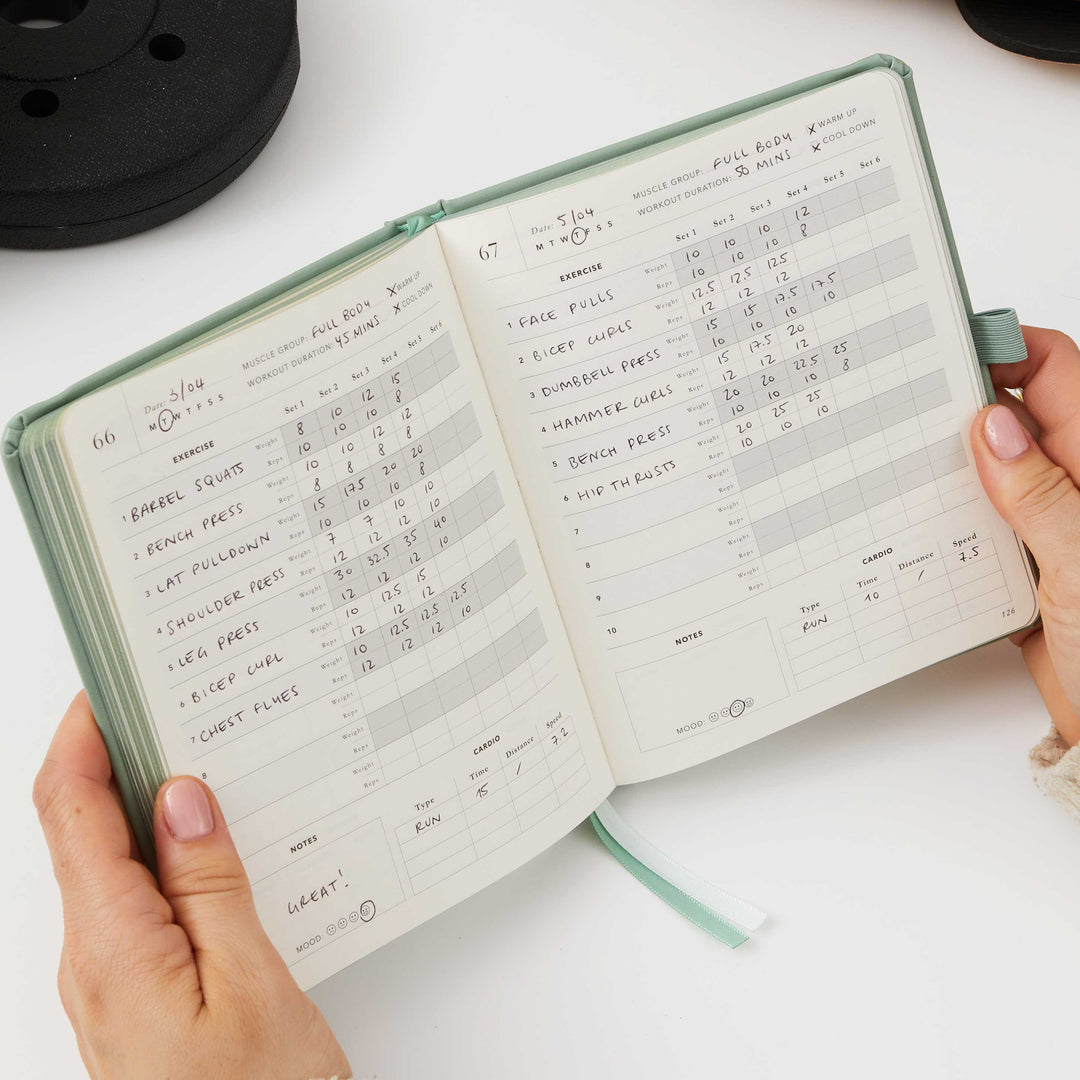 66
Date: 3/04
M T W T F S S
MUSCLE GROUP: FULL BODY
X WARM UP
WORKOUT DURATION: 45 MINS
X COOL DOWN
EXERCISE
Set 1 Set 2 Set 3 Set 4 Set 5 Set 6
1 BARBEL SQUATS Weight 8 10 12 15
Reps 10 10 10 8
2 BENCH PRESS Weight 10 10 12 12
Reps 8 8 8 8
3 LAT PULLDOWN Weight 15 17.5 20 20
Reps 10 10 10 8
4 SHOULDER PRESS Weight 7 7 10 10
Reps 12 12 12 10
5 LEG PRESS Weight 30 32.5 35 40
Reps 12 12 12 10
6 BICEP CURL Weight 10 12.5 15
Reps 12 12 12
7 CHEST FLYES Weight 10 12.5 12.5 12.5
Reps 12 12 12 10
8 Weight
Reps
Weight
Reps
CARDIO
Type Time Distance Speed
RUN 15 / 7.2
NOTES
GREAT!
MOOD:
67
Date: 5/04
M T W T F S S
MUSCLE GROUP: FULL BODY
X WARM UP
WORKOUT DURATION: 50 MINS
X COOL DOWN
EXERCISE
Set 1 Set 2 Set 3 Set 4 Set 5 Set 6
1 FACE PULLS Weight 10 10 10 12
Reps 10 10 10 8
2 BICEP CURLS Weight 12.5 12.5 12.5
Reps 12 12 12
3 DUMBBELL PRESS Weight 15 15 17.5 17.5
Reps 10 10 10 10
4 HAMMER CURLS Weight 15 17.5 20
Reps 12 12 12
5 BENCH PRESS Weight 20 20 22.5 25
Reps 10 10 10 8
6 HIP THRUSTS Weight 20 25 25
Reps 10 10 10
7 Weight
Reps
8 Weight
Reps
9 Weight
Reps
10
CARDIO
Type Time Distance Speed
RUN 10 / 7.5
NOTES
MOOD:
126